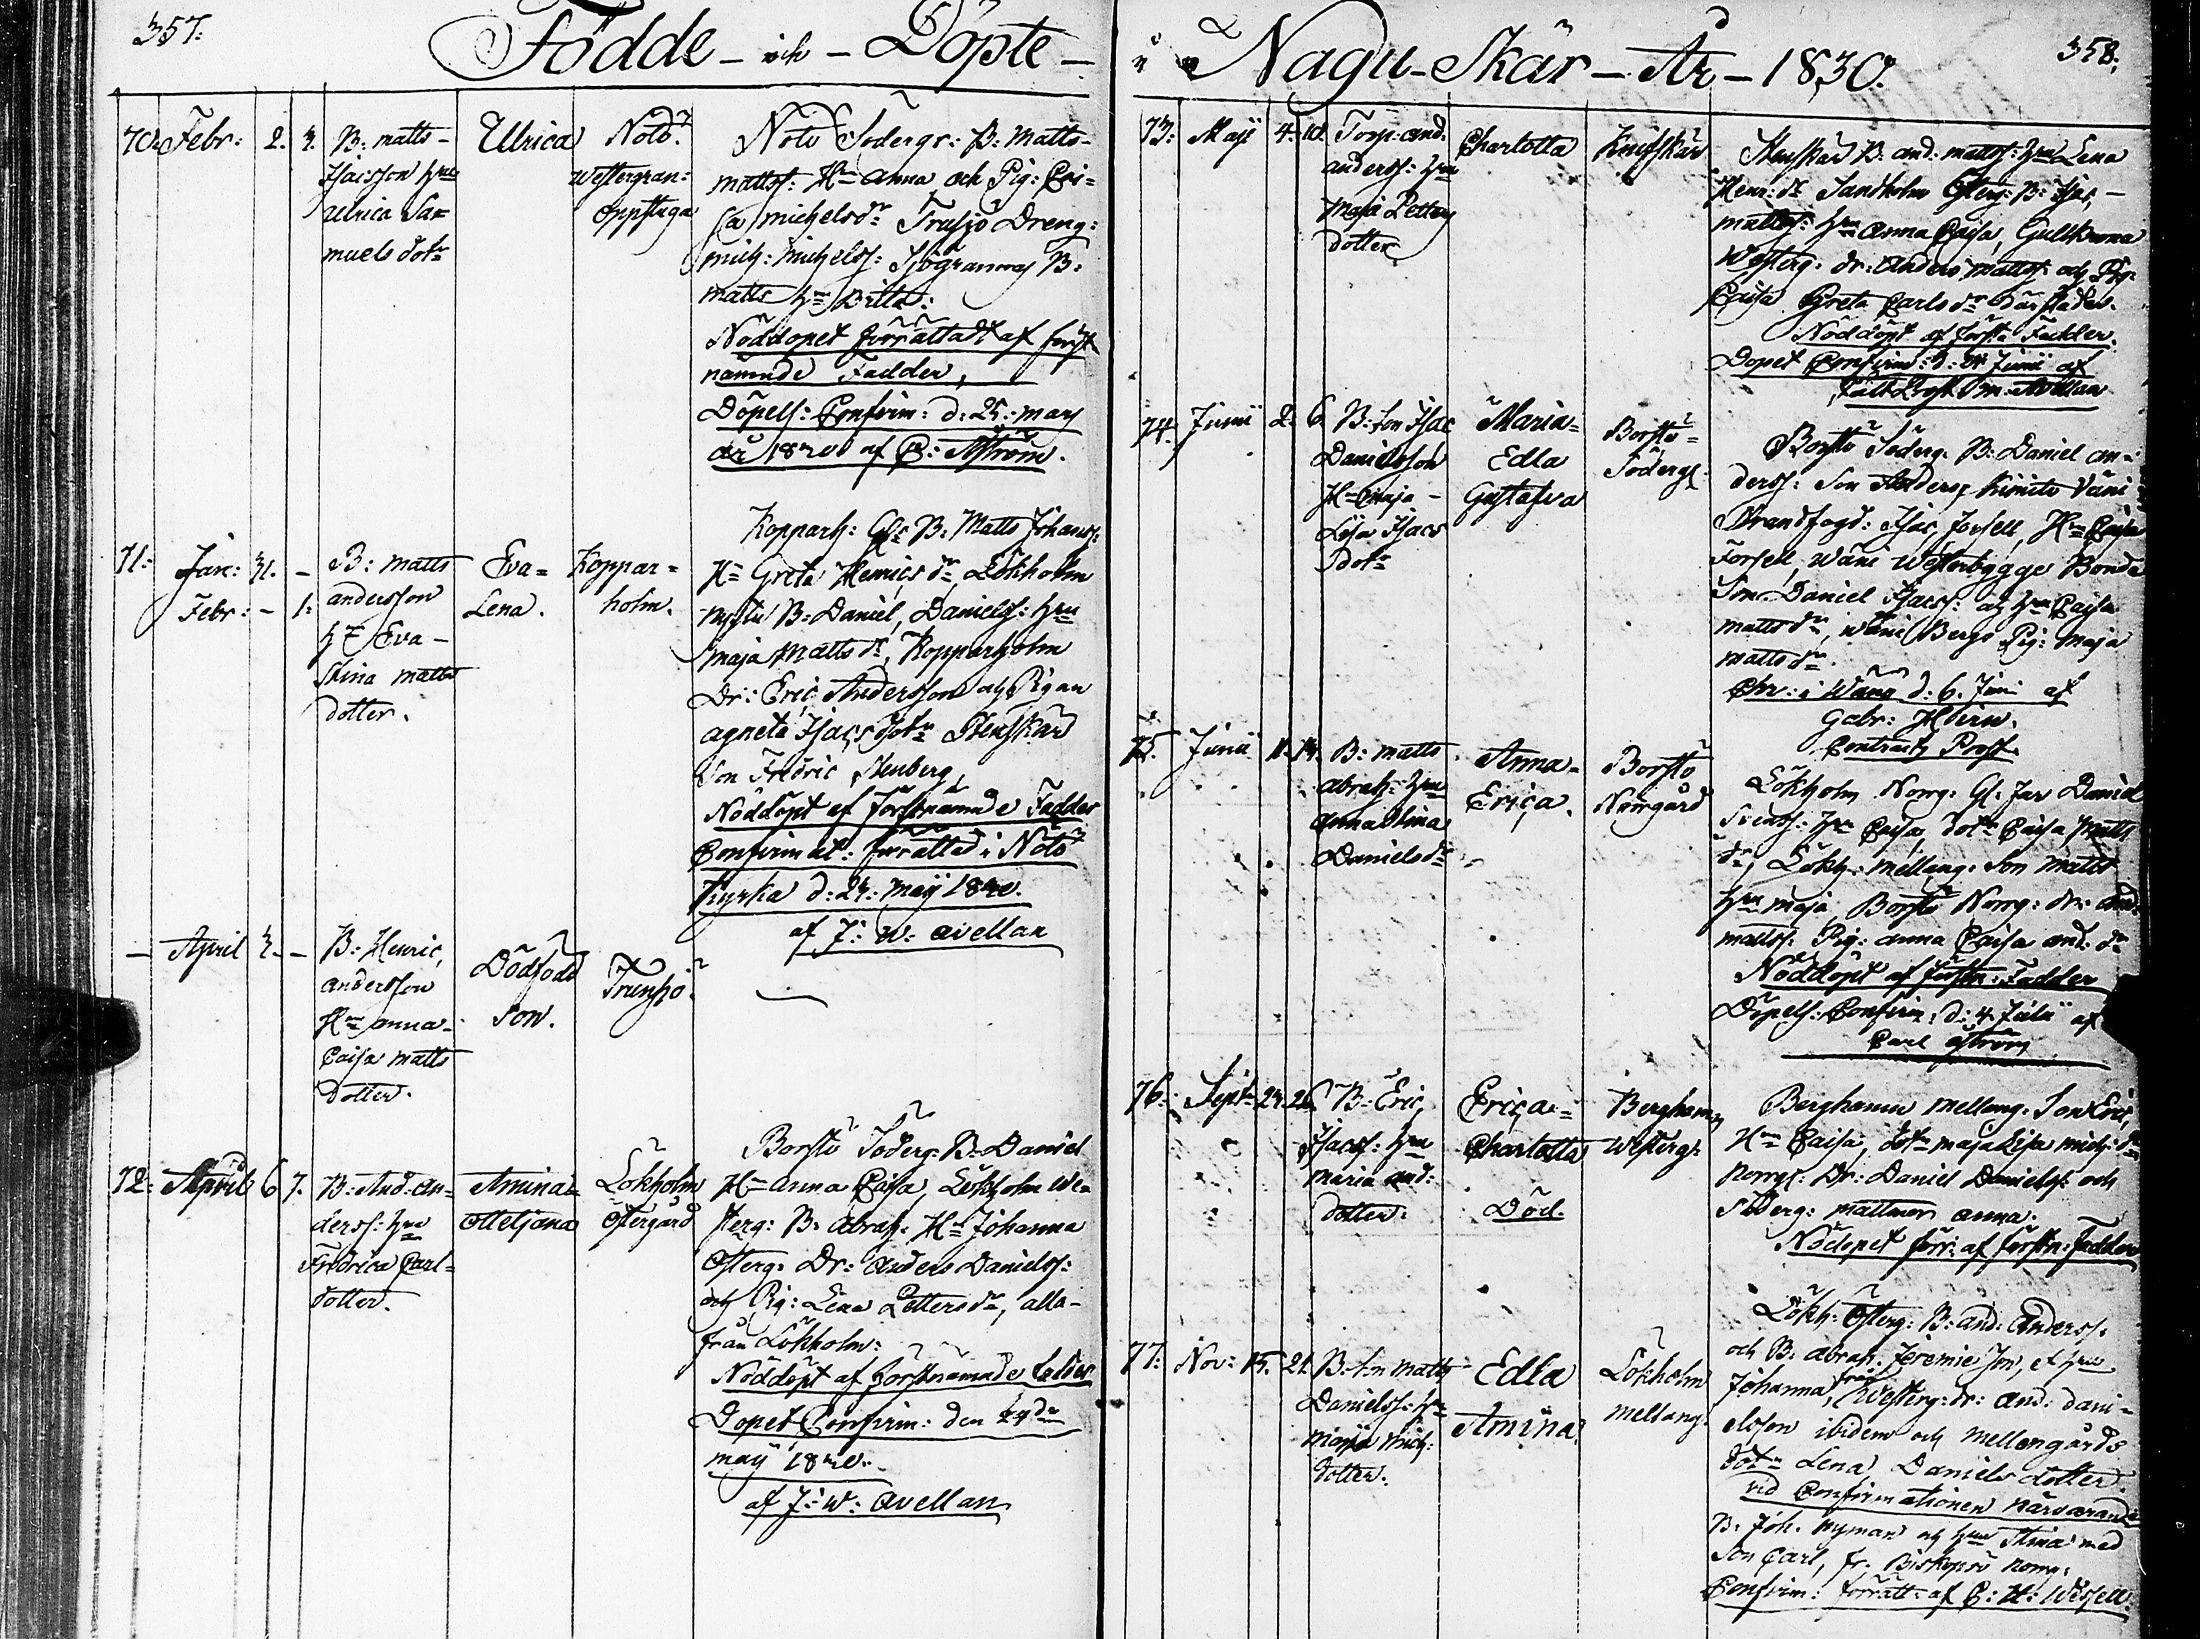 357.
Födde – och – Döpte –
70. Febr: 2. 3. B: Matts
Isacsson Hu
Ulrica Sa=
muels dotr
Ulrica
Nötö
Westergran:
Oppstuga
Nötö Söderg: B: Matts
Mattss: Hu Anna och Pig: Cai=
sa Michelsdr Trunsjö Dreng:
Mich: Michelss:
Matts Hu Britta:
Nöddopet förrättadt af först
nämnde Fadder,
Döpels: Confirm: d: 25: Maij
år 1830 af C: Åström.
71: Jan: 31. –
Febr: – 1:
B: Matts
Andersson
Hu Eva –
Stina Matts
dotter.
Eva=
Lena.
Koppar=
holm.
Kopparh: B: Matts Johanss:
Hu Greta Henricsdr, Lökholm
B: Daniel Danielss: Hu
Maja Mattsdr, Kopparholm
Dr: Eric Andersson och Pigan
Agneta Isacs dotr Stenskär
Son Fredric Stenberg,
Nöddöpt af förstnämnde Fadder
Confirmat: förrättad i Nötö
Kyrka d: 24: Maij 1830.
af J: W: Avellan
– April 3. – B: Henric
Andersson
Hu Anna
Caisa Matts
dotter.
Dödfödd
Son.
Trunsjö
72: April 6 7. B: And: An=
derss: Hu
Fredrica Carl=
dotter.
Amina
Otteljana
Lökholm
Östergård
Borstö Söderg: B: Daniel
Hu Anna Caisa, Lökholm We=
sterg: B: Abrah: Hu Johanna
Österg: Dr: Anders Danielss:
och Pig: Lena Pettersdr, alla
från Lökholm:
Nöddöpt af förstnämnde Fadder
Dopet Confirm: den 24de
Maij 1830.
af J: W: Avellan
358.
i Nagu – Skär – År – 1830.
73: Maji 4. 10. Torp: And:
Anderss: Hu
Maja Petters
dotter
Charlotta
Knifskär
Stenskär B: And: Mattss: Hu Lena
Henr: dr Sandholm Österg: B: Isac
Mattss: Hu Anna Caisa, Gullkrona
Westerg: dr: Anders Mattss: och Pig:
Caisa Greta Carlsdr därstädes.
Nöddöpt af första Fadder.
Dopet Confirm: d: Junii af
Avellan
74. Junii 2. 6. B: Son Isac
Danielsson
Hu Maja –
Lisa Isacs
dotr
Maria=
Edla
Gustafva
Borstö=
Söderg:
Borstö Söderg: B: Daniel An=
derss: Son Anders, Kimito Väni
Strandfogd: Isac Forsell, Hu Caisa
Forsell, Wäni Westerbygge Bonde
Son Daniel Isacs: och Hu Caisa
Mattsdr, Wäni Bergs Pig: Maja
Mattsdr.
Chr: i Wänö d: 6. Juni af
Gabr: Hirn.
Contracts Prost
75. Junii 11. 14. B: Matts
Abrah: Hu
Anna Stina
Danielsdr
Anna=
Erica.
Borstö
Norrgård
Lökholm Norrg: Gl: Far Daniel
Hu Caisa, dotr Caisa Matts
dr, Lökh: Mellang: Son Matts
Hu Maja, Borstö Norrg: dr: And:
Mattss: Pig: Anna Caisa And: dr
Nöddöpt af förstn: Fadder
Döpels: Confirm: d: 4 Julii af
Carl Åström
76. Sept: 24. 26. B: Eric
Isacss: Hu
Maria And:
dotter.
Erica=
Charlotta
Död.
Berghamn
Westerg:
Berghamn Mellang: Son Eric,
Hu Caisa, dotr Maja Lisa Mich: dr
Norrg: Dr: Daniel Danielss: och
Söderg: Mattmor Anna.
Nödopet förr: af förstn: Fadder
77: Nov: 15. 21. B: Son Matts
Danielss: Hu
Maja Mich:
dotter.
Edla
Amina.
Lökholm
Mellang:
Lökh: Österg: B: And: Anderss:
och B: Abrah: Jeremie Son, et Hu
Johanna, från Westerg: dr: And: Dani=
elsson ibidem och Mellangårds
dotr Lena Daniels dotter.
vid Confirmationen närvarande
B: Joh: Nyman och Hu Stina med
Son Carl, fr. Biskopsö Norrg:
Confirm: förrätt: af C: H: Widjell.